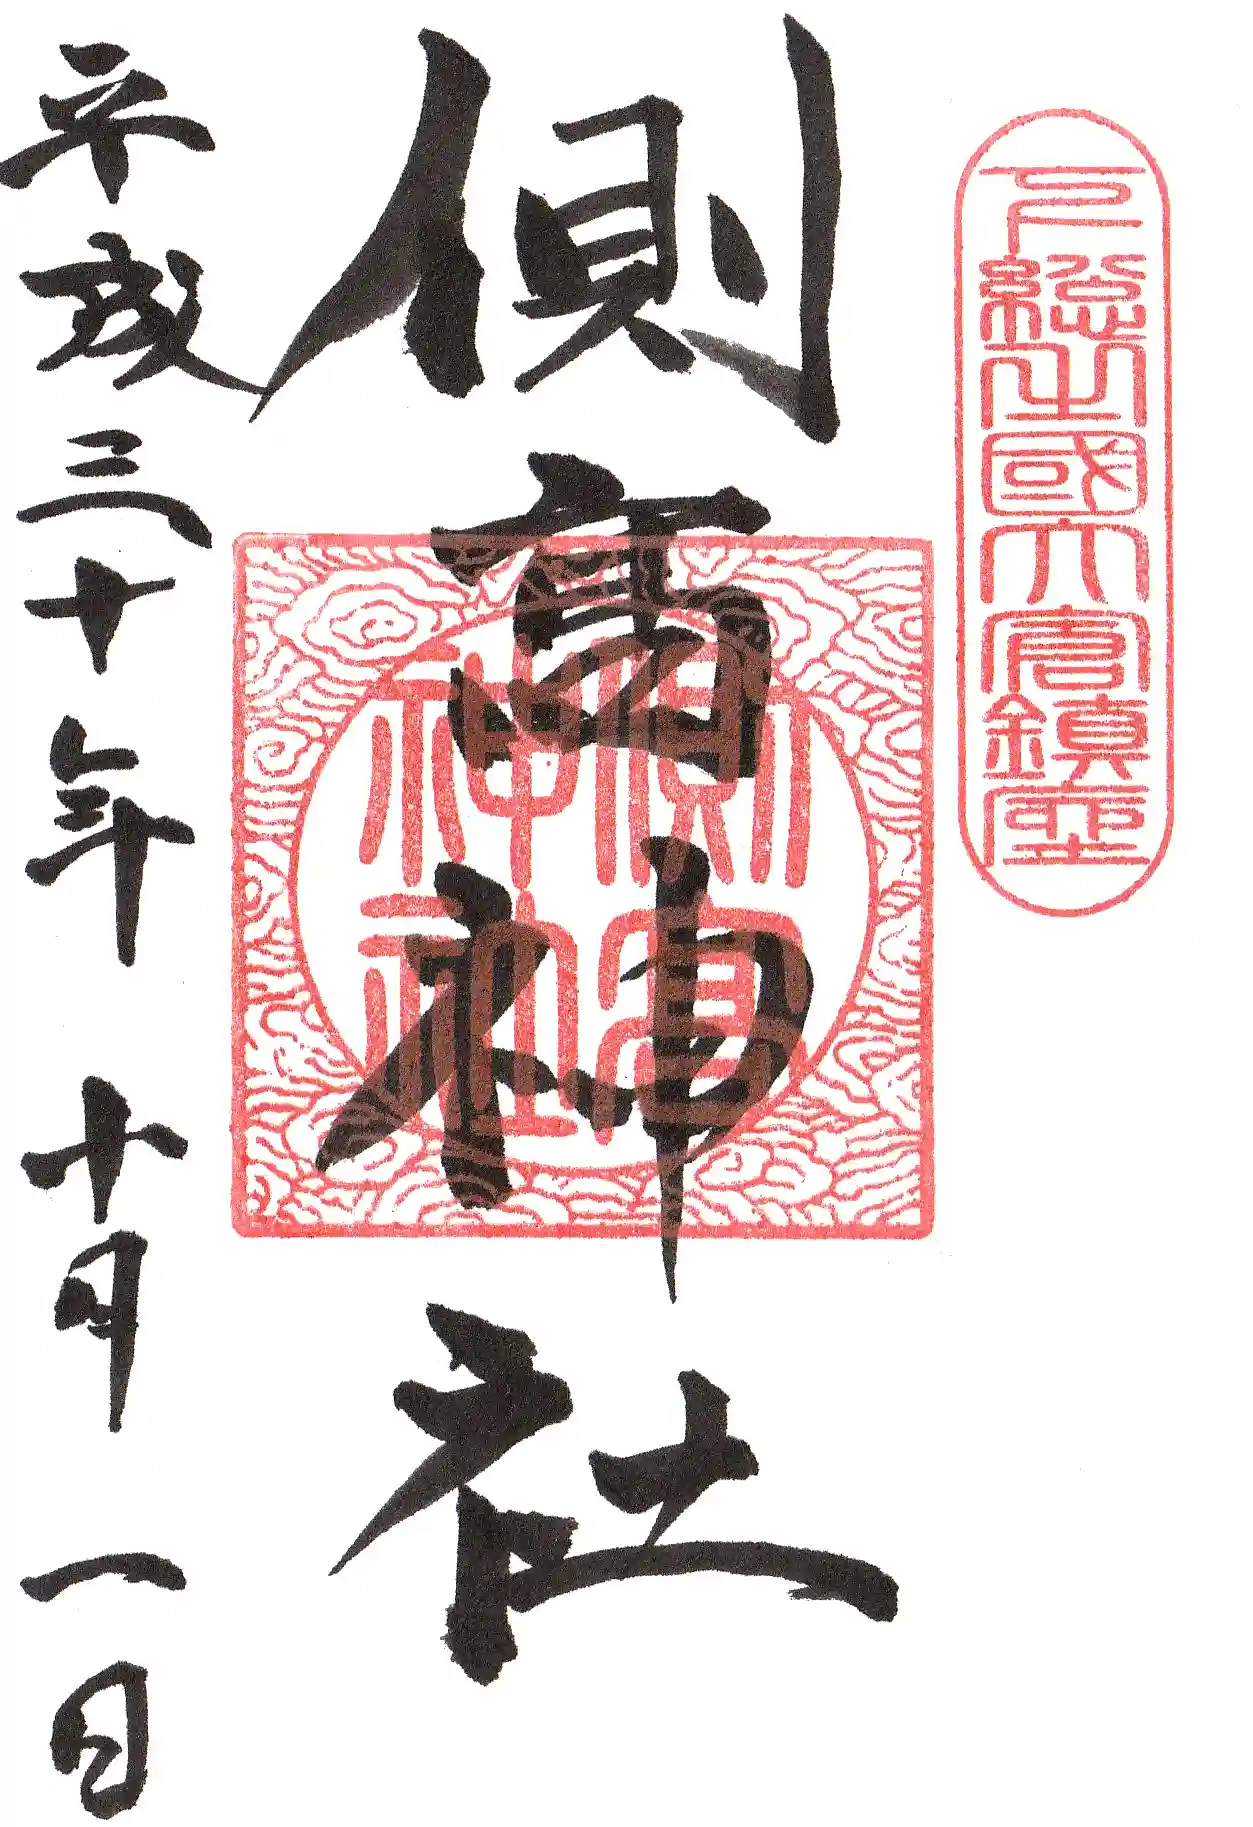 下總之國大倉鎮座
側高神社
側高
神社
平成三十年 十月 一日